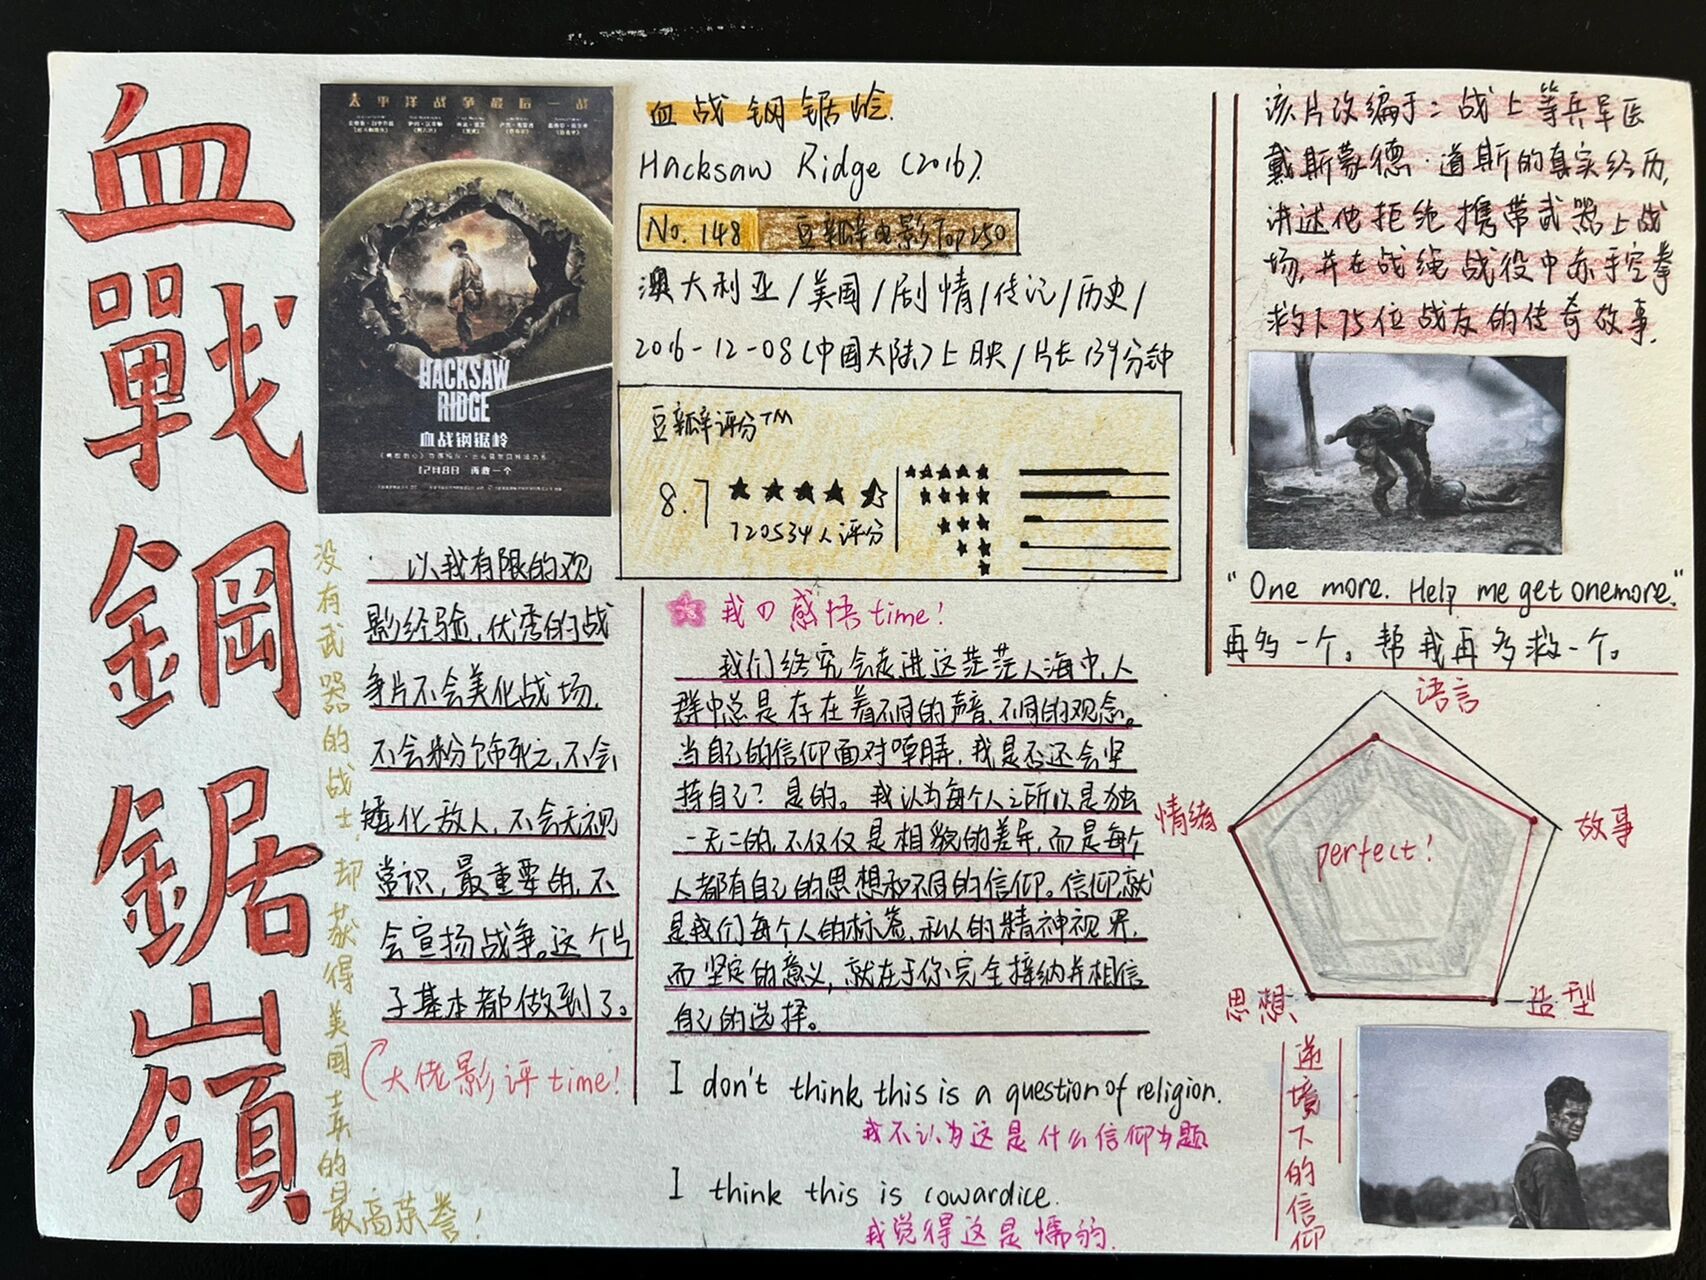 血戰鋼鋸嶺
太平洋战争最后一战
HACKSAW
RIDGE
血战钢锯岭
12月8日 再救一个
没有武器的战士,却获得美国军的最高荣誉!
以我有限的观
影经验,优秀的战
争片不会美化战场,
不会粉饰死亡,不会
矮化敌人,不会无视
常识,最重要的,不
会宣扬战争。这个片
子基本都做到了。
大佬影评time!
血战钢锯岭.
Hacksaw Ridge (2016).
No.148 豆瓣电影Top250
澳大利亚/美国/剧情/传记/历史/
2016-12-08(中国大陆)上映/片长139分钟
豆瓣评分TM
8.7
720534人评分
我の感悟time!
我们终究会走进这茫茫人海中,人
群中总是存在着不同的声音,不同的观念。
当自己的信仰面对嘲弄,我是否还会坚
持自己?是的。我认为每个人之所以是独
一无二的,不仅仅是相貌的差异,而是每个
人都有自己的思想和不同的信仰。信仰就
是我们每个人的标签,私人的精神视界,
而坚定的意义,就在于你完全接纳并相信
自己的选择。
I don't think this is a question of religion.
我不认为这是什么信仰问题
I think this is cowardice.
我觉得这是懦弱.
该片改编于二战上等兵军医
戴斯蒙德·道斯的真实经历,
讲述他拒绝携带武器上战
场,并在战绳战役中赤手空拳
救下75位战友的传奇故事.
"One more. Help me get onemore."
再多一个。帮我再多救一个。
语言
情绪
故事
perfect!
思想
造型
逆境下的信仰